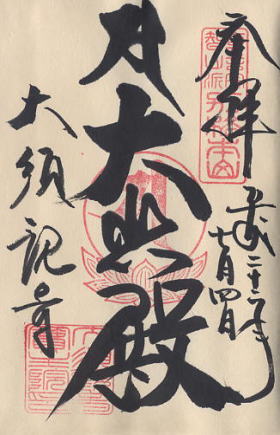 奉拝
平成二十二年
七月四日
大悲殿
大須観音